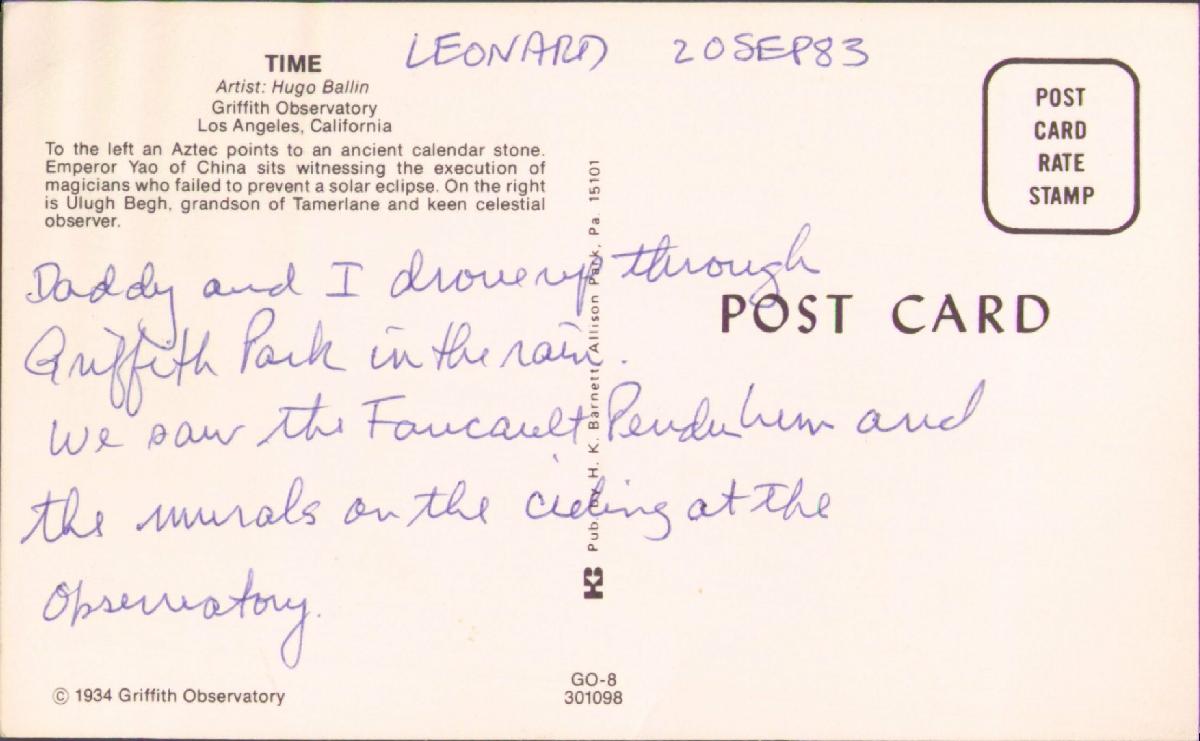 LEONARD 20SEP83
TIME
Artist: Hugo Ballin
Griffith Observatory
Los Angeles, California
To the left an Aztec points to an ancient calendar stone.
Emperor Yao of China sits witnessing the execution of
magicians who failed to prevent a solar eclipse. On the right
is Ulugh Begh, grandson of Tamerlane and keen celestial
observer.
POST
CARD
RATE
STAMP
POST CARD
Daddy and I drove up through
Griffith Park in the rain.
We saw the Foucault Pendulum and
the murals on the cieling at the
Observatory.
Pub. by H. K. Barnett, Allison Park, Pa. 15101
HB
© 1934 Griffith Observatory
GO-8
301098